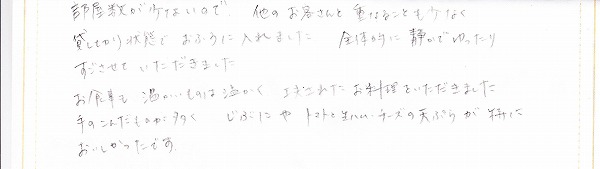 部屋数が少ないので、他のお客さんと重なることも少なく
貸しきり状態でおふろに入れました 全体的に静かでゆったり
すごさせていただきました
お食事も温かいものは温かく 工夫されたお料理をいただきました
手のこんだものが多く じぶにやトマトと生ハム・チーズの天ぷらが特に
おいしかったです。